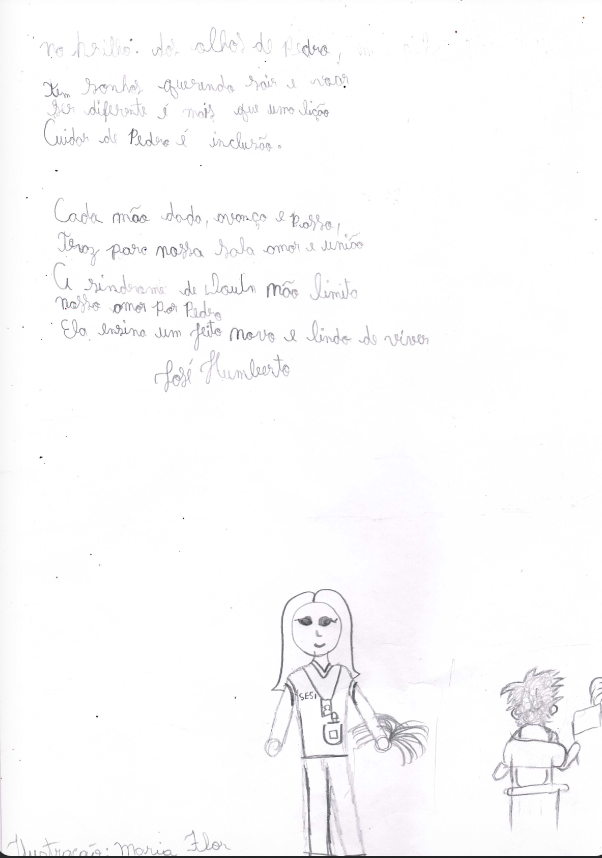 no brilho dos olhos de Pedro,
tem sonhos querendo sair e voar
ser diferente é mais que uma lição
Cuidar de Pedro é inclusão.
Cada mão dada, avanço e passo,
Traz para nossa sala amor e união
A sindrome de Douln não limita
nosso amor por Pedro
Ela ensina um jeito novo e lindo de viver
José Humberto
SESI
Ilustração: Maria Flor